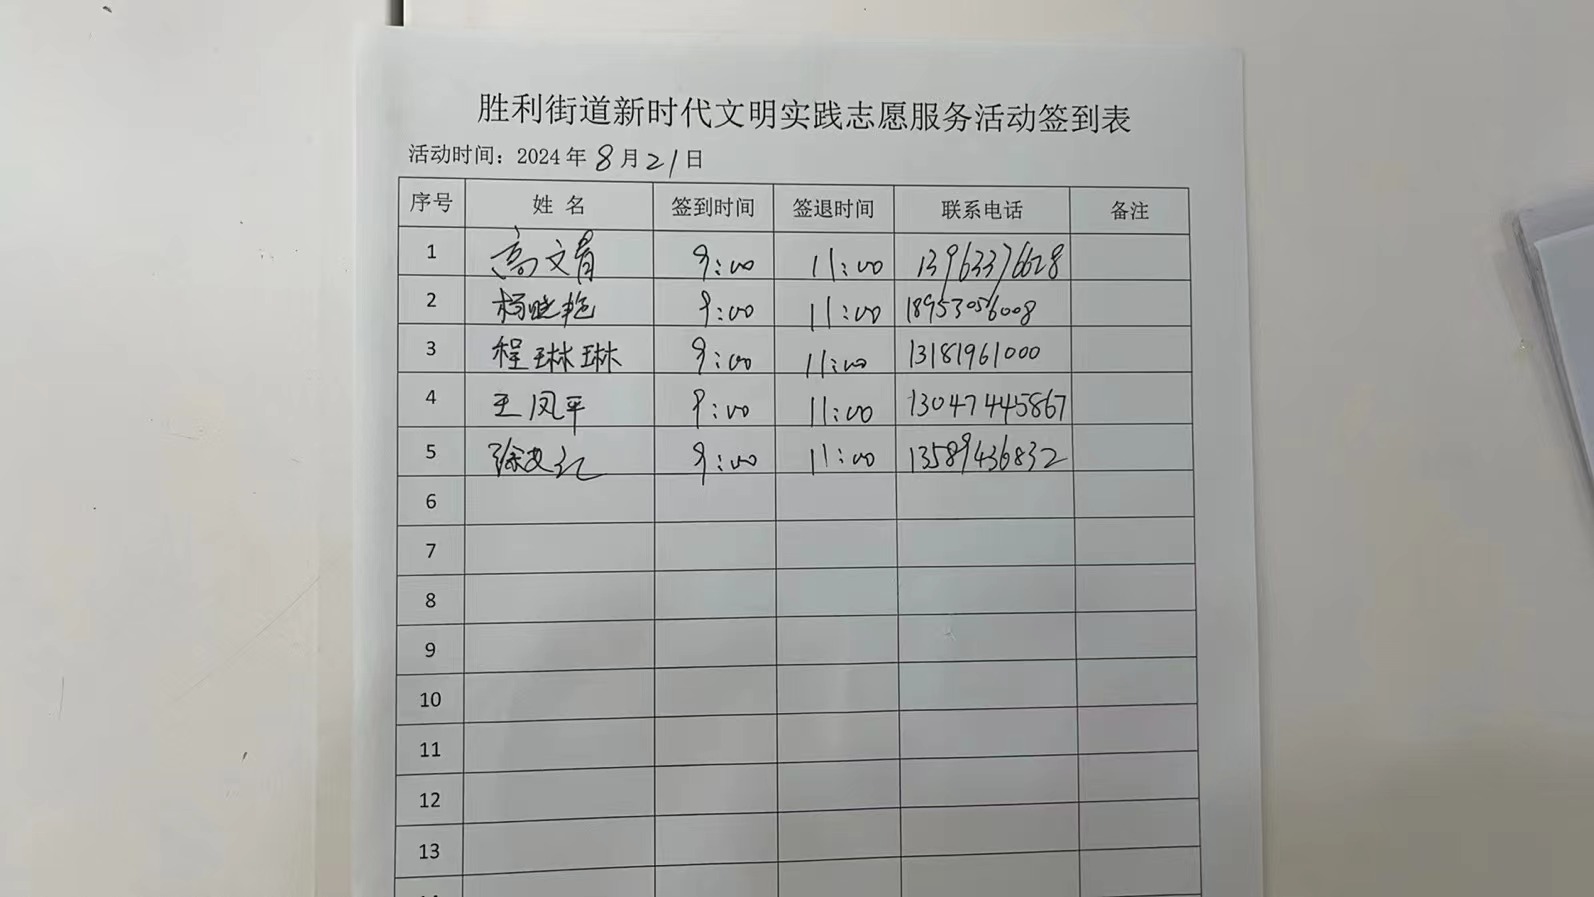 胜利街道新时代文明实践志愿服务活动签到表
活动时间：2024年8月21日
序号 姓 名 签到时间 签退时间 联系电话 备注
1 高文娟 9:00 11:00 13963376628
2 杨晓艳 9:00 11:00 18953056008
3 程琳琳 9:00 11:00 13181961000
4 王凤平 9:00 11:00 13047445867
5 徐艾红 9:00 11:00 13589436832
6
7
8
9
10
11
12
13